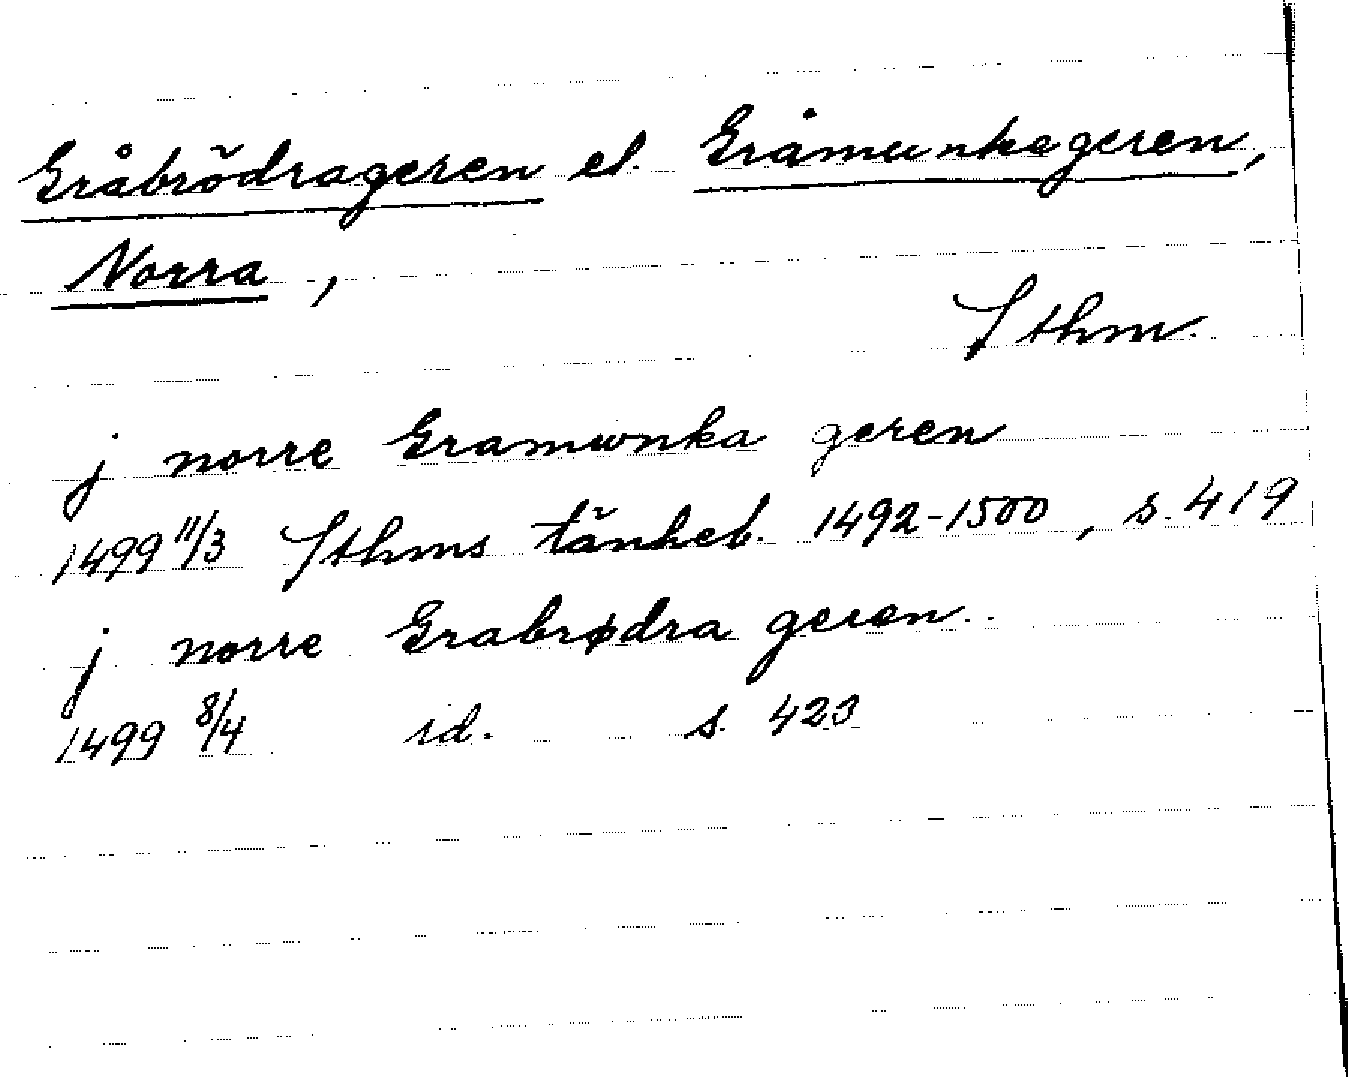 Gråbrödrageren el. Gråmunkageren,
Norra,
Sthm.
j norre Gramwnka geren
1499 11/3 Sthms tänkeb. 1492-1500, s. 419
j norre Grabrødra geren.
1499 8/4 id. s. 423